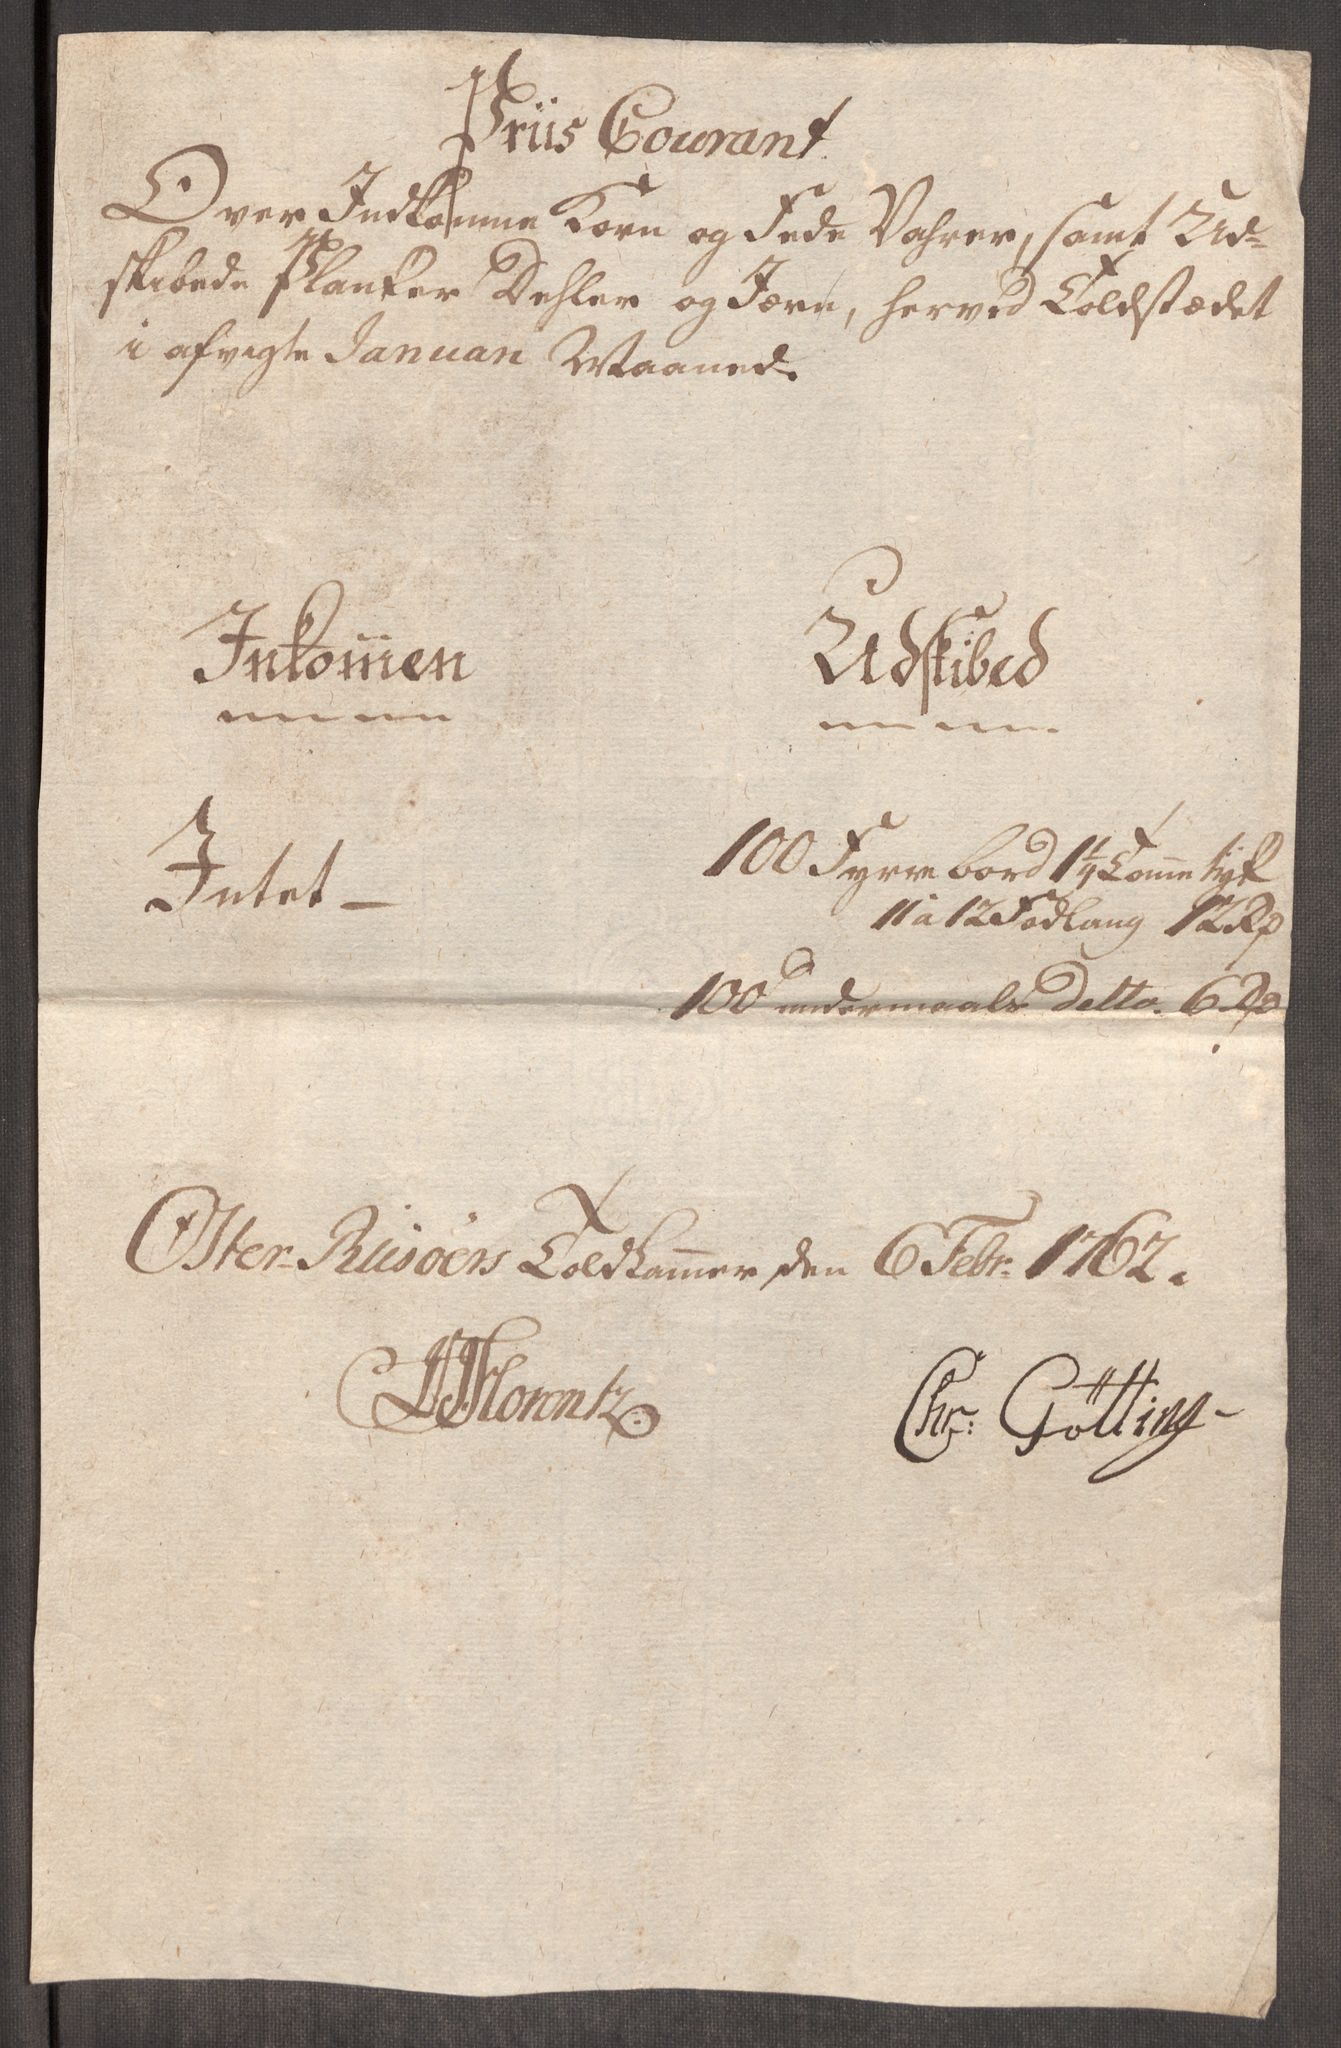 Priis Courant
Over Indkomne Korn og Fede Vahrer, samt Ud-
skibede Planker Dehler og Jern, herved Toldstædet
i afvigte Januari Maaned.
Inkom̅en
Udskibed
Intet —
100 Fyrre bord 1¼ Tom̅e tyk
11 a 12 Fod lang 12 Rd
100 undermaals detto. 6 Rd
Øster-Riisöers Toldkam̅er den 6 Febr: 1762.
Florentz
Chr: Götting